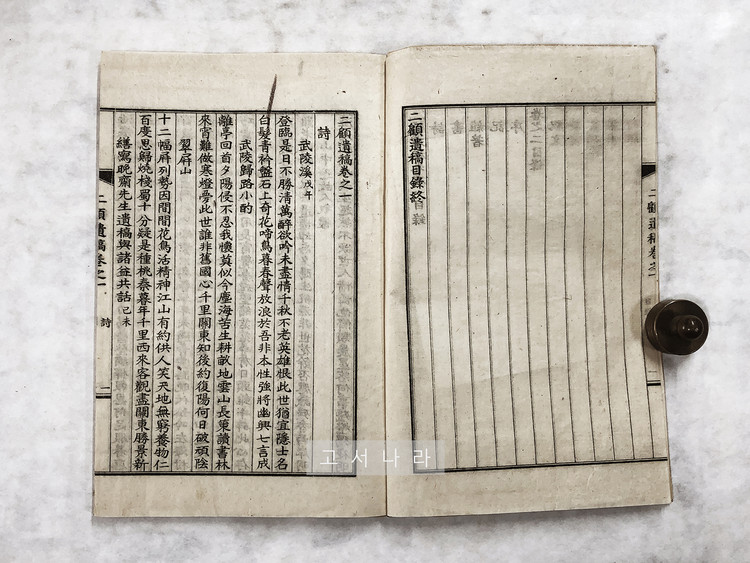 二顧遺稿卷之一
二顧遺稿目錄終
二顧遺稿卷之一
詩
武陵溪 戊午
登臨是日不勝淸萬醉欲吟未盡情千秋不老英雄恨此世猶宜隱士名
白髮靑衿盤石上奇花啼鳥暮春聲放浪於吾非本性強將幽興七言成
武陵歸路小酌
離亭回首夕陽侵不忍我懷莫似今塵海苦生耕畝地雲山長策讀書林
來宵難做寒燈夢此世誰非舊國心千里關東知後約復陽何日破頑陰
翠屛山
十二幅屛列勢因間間花鳥活精神江山有約供人笑天地無窮養物仁
百度思歸燒棧蜀十分疑是種桃秦暮年千里西來客觀盡關東勝景新
繕寫晩齋先生遺稿與諸益共話 己未
二顧遺稿卷之一
詩
고서나라